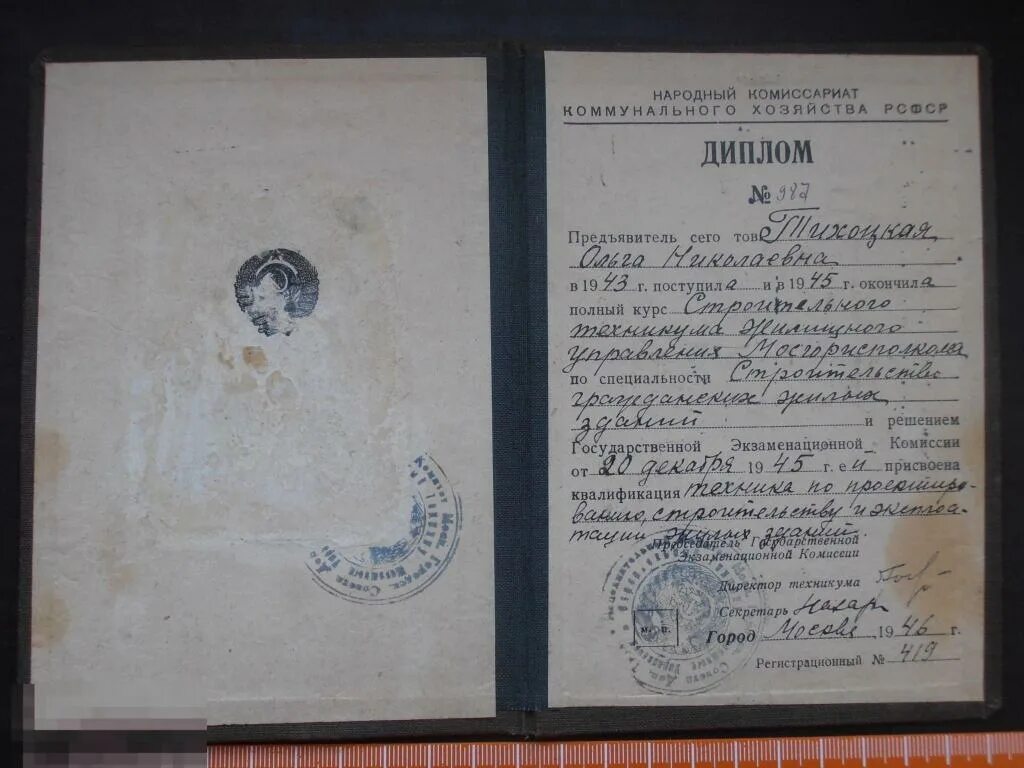 НАРОДНЫЙ КОМИССАРИАТ
КОММУНАЛЬНОГО ХОЗЯЙСТВА РСФСР
ДИПЛОМ
№ 987
Предъявитель сего тов. Тихоцкая
Ольга Николаевна
в 1943 г. поступила и в 1945 г. окончила
полный курс Строительного
техникума Жилищного
управления Мосгорисполкома
по специальности Строительство
гражданских жилых
зданий и решением
Государственной Экзаменационной Комиссии
от 20 декабря 1945 г. ей присвоена
квалификация техника по проектиро-
ванию, строительству и эксплоа-
тации жилых зданий.
Председатель Государственной
Экзаменационной Комиссии
Директор техникума
Секретарь
М. П.
Город Москва 1946 г.
Регистрационный № 419